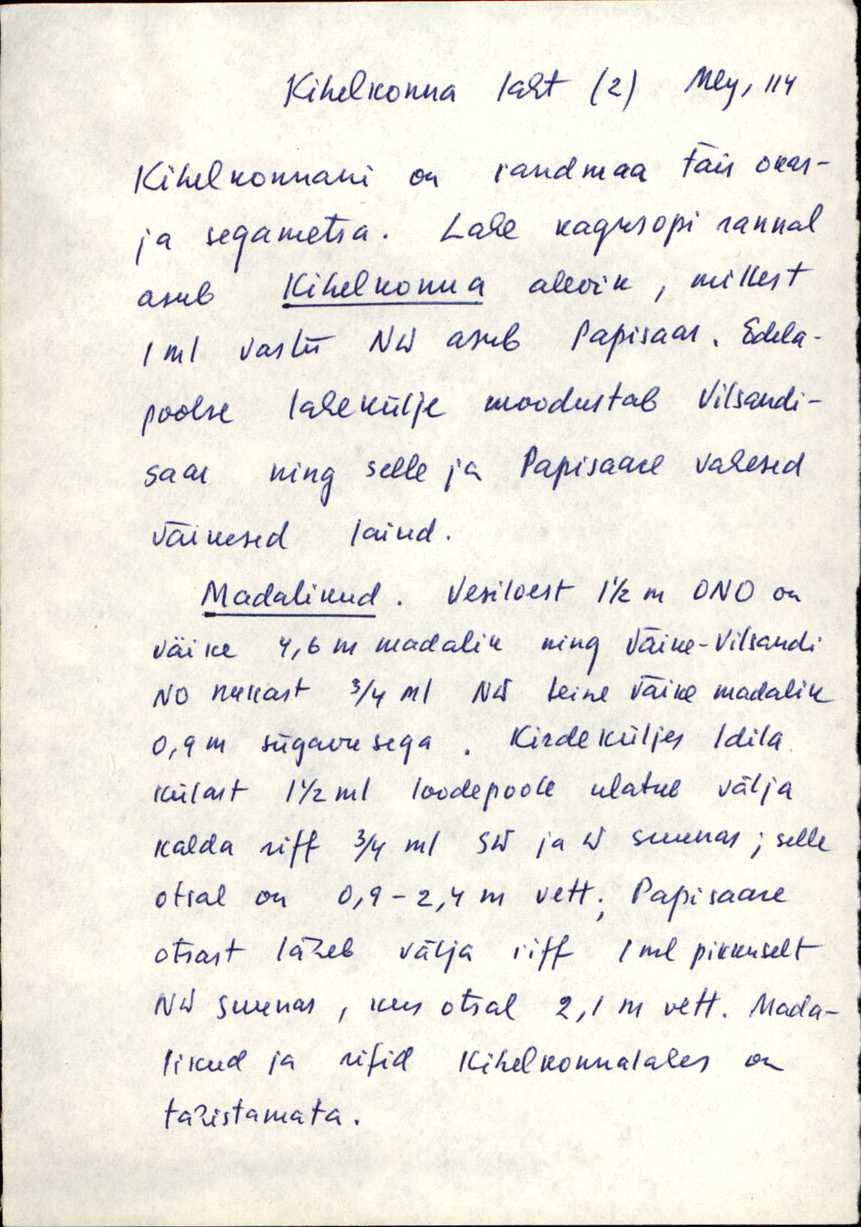 Kihelkonna laht (2) Mey, 114
Kihelkonnani on randmaa täis okas-
ja segametsa. Lahe kagusopi rannal
asub Kihelkonna alevik, millest
1 ml vastu NW asub Papisaar. Edela-
poolse lahekülje moodustab Vilsandi-
saar ning selle ja Papisaare vahesed
väikesed laiud.
Madalikud. Vesiloost 1½ m ONO on
väike 4,6 m madalik ning Väike-Vilsandi
NO nukast 3/4 ml NW teine väike madalik
0,9 m sügavusega. Kirdeküljes Idila
külast 1½ ml loodepoole ulatub välja
kalda riff 3/4 ml SW ja W suunas; selle
otsal on 0,9 - 2,4 m vett; Papisaare
otsast läheb välja riff 1 ml pikkuselt
NW suunas, kus otsal 2,1 m vett. Mada-
likud ja rifid Kihelkonnalahes on
tähistamata.